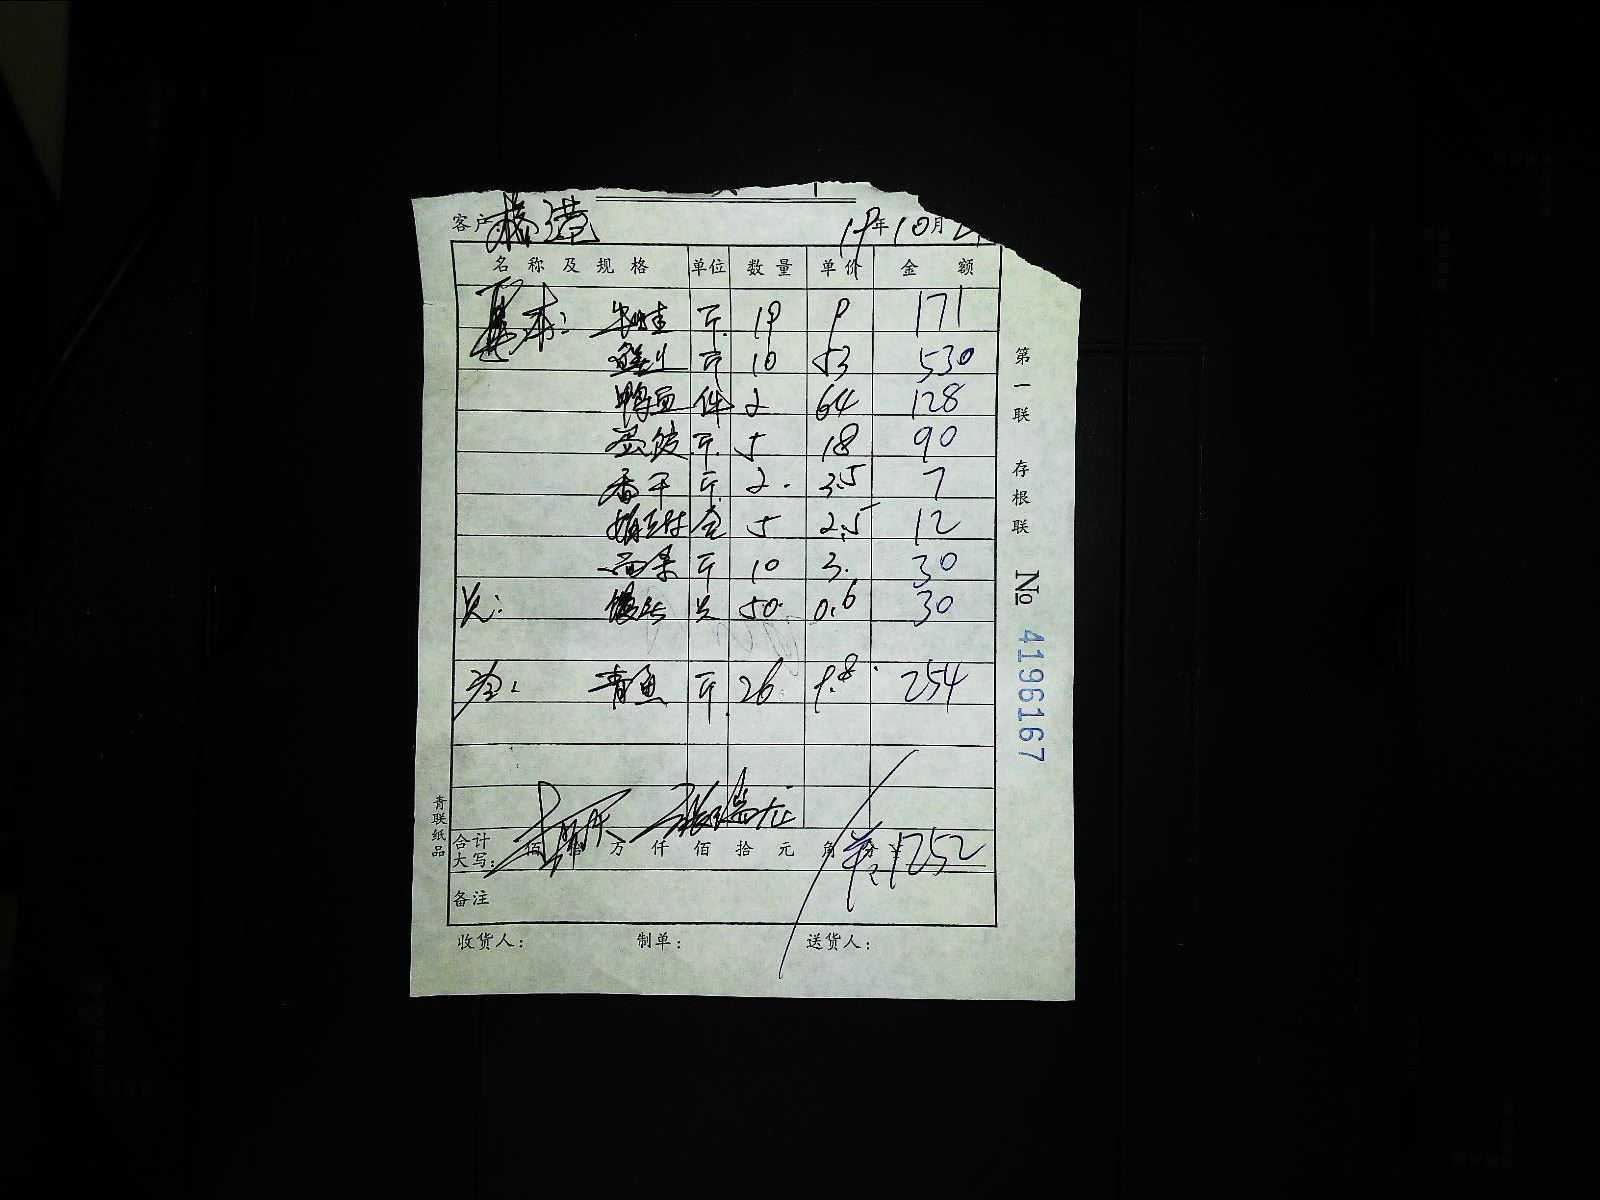 客户 杨港 19年10月
名称及规格 单位 数量 单价 金额
基本: 牛蛙 斤 19 9 171
斤 10 53 530
鸭血 件 2 64 128
蛋饺 斤 5 18 90
香干 斤 2 3.5 7
盒 5 2.5 12
西果 斤 10 3. 30
馒头 只 50 0.6 30
青鱼 斤 26 9.8 254
合计
大写: 佰 拾 万 仟 佰 拾 元 角 分 ¥1252
备注
收货人: 制单: 送货人:
第一联 存根联 № 4196167
青联纸品